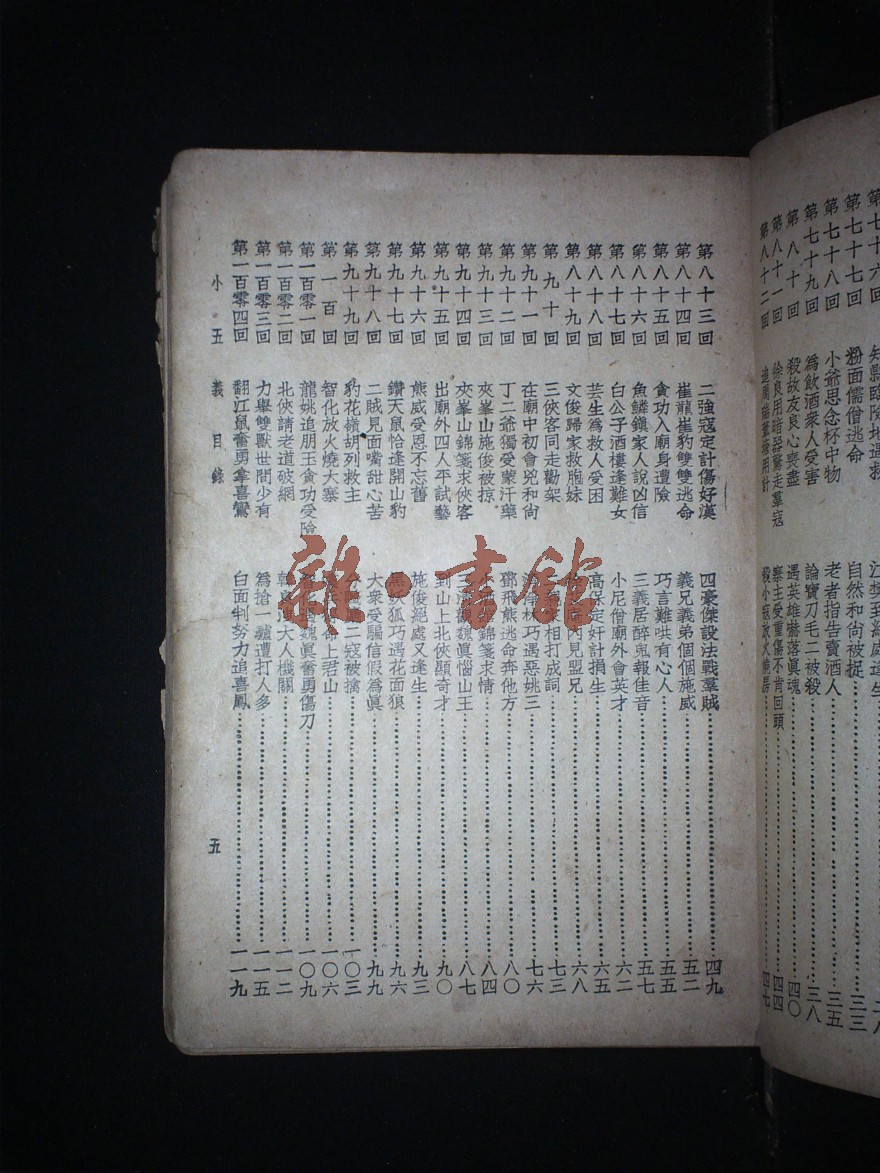 第七十六回 知縣臨險地遇救
第七十七回 粉面儒僧逃命 自然和尙被捉 三三
第七十八回 小爺思念杯中物 老者指告賣酒人 三五
第七十九回 爲飲酒衆人受害 論寶刀毛二被殺 三八
第八十回 殺故友良心喪盡 遇英雄嚇落眞魂 四〇
第八十一回 徐良用暗器驚走羣寇 寨主受重傷不肯回頭 四四
第八十二回 用計 殺小寇放火燒房 四七
第八十三回 二強寇定計傷好漢 四豪傑設法戰羣賊 四九
第八十四回 崔龍崔豹雙雙逃命 義兄義弟個個施威 五二
第八十五回 貪功入廟身遭險 巧言難哄有心人 五五
第八十六回 魚鱗鎭家人說凶信 三義居醉鬼報佳音 五七
第八十七回 白公子酒樓逢難女 小尼僧廟外會英才 六二
第八十八回 芸生爲救人受困 高保定奸計損生 六五
第八十九回 文俊歸家救胞妹 內見盟兄 六八
第九十回 三俠客同走勸架 相打成詞 七三
第九十一回 在廟中初會兇和尙 林巧遇惡姚三 七六
第九十二回 丁二爺獨受蒙汗藥 鄧飛熊逃命奔他方 八〇
第九十三回 夾峯山施俊被掠 錦箋求情 八四
第九十四回 夾峯山錦箋求俠客 三淸觀魏眞惱山王 八七
第九十五回 出廟外四人平試藝 到山上北俠顯奇才 九〇
第九十六回 熊威受恩不忘舊 施俊絕處又逢生 九三
第九十七回 鑽天鼠恰逢開山豹 黑妖狐巧遇花面狼 九六
第九十八回 二賊見面嘴甜心苦 大衆受騙信假爲眞 九九
第九十九回 豹花嶺胡列救主 二寇被擒 一〇三
第一百回 智化放火燒大寨 上君山 一〇六
第一百零一回 龍姚追朋玉貪功受險 魏眞奮勇傷刀 一〇九
第一百零二回 北俠請老道破網 大人機關 一一二
第一百零三回 力舉雙獸世間少有 爲搶一驢遭打人多 一一五
第一百零四回 翻江鼠奮勇拿喜鸞 白面判努力追喜鳳 一一九
小五義目錄 五
雜·書館